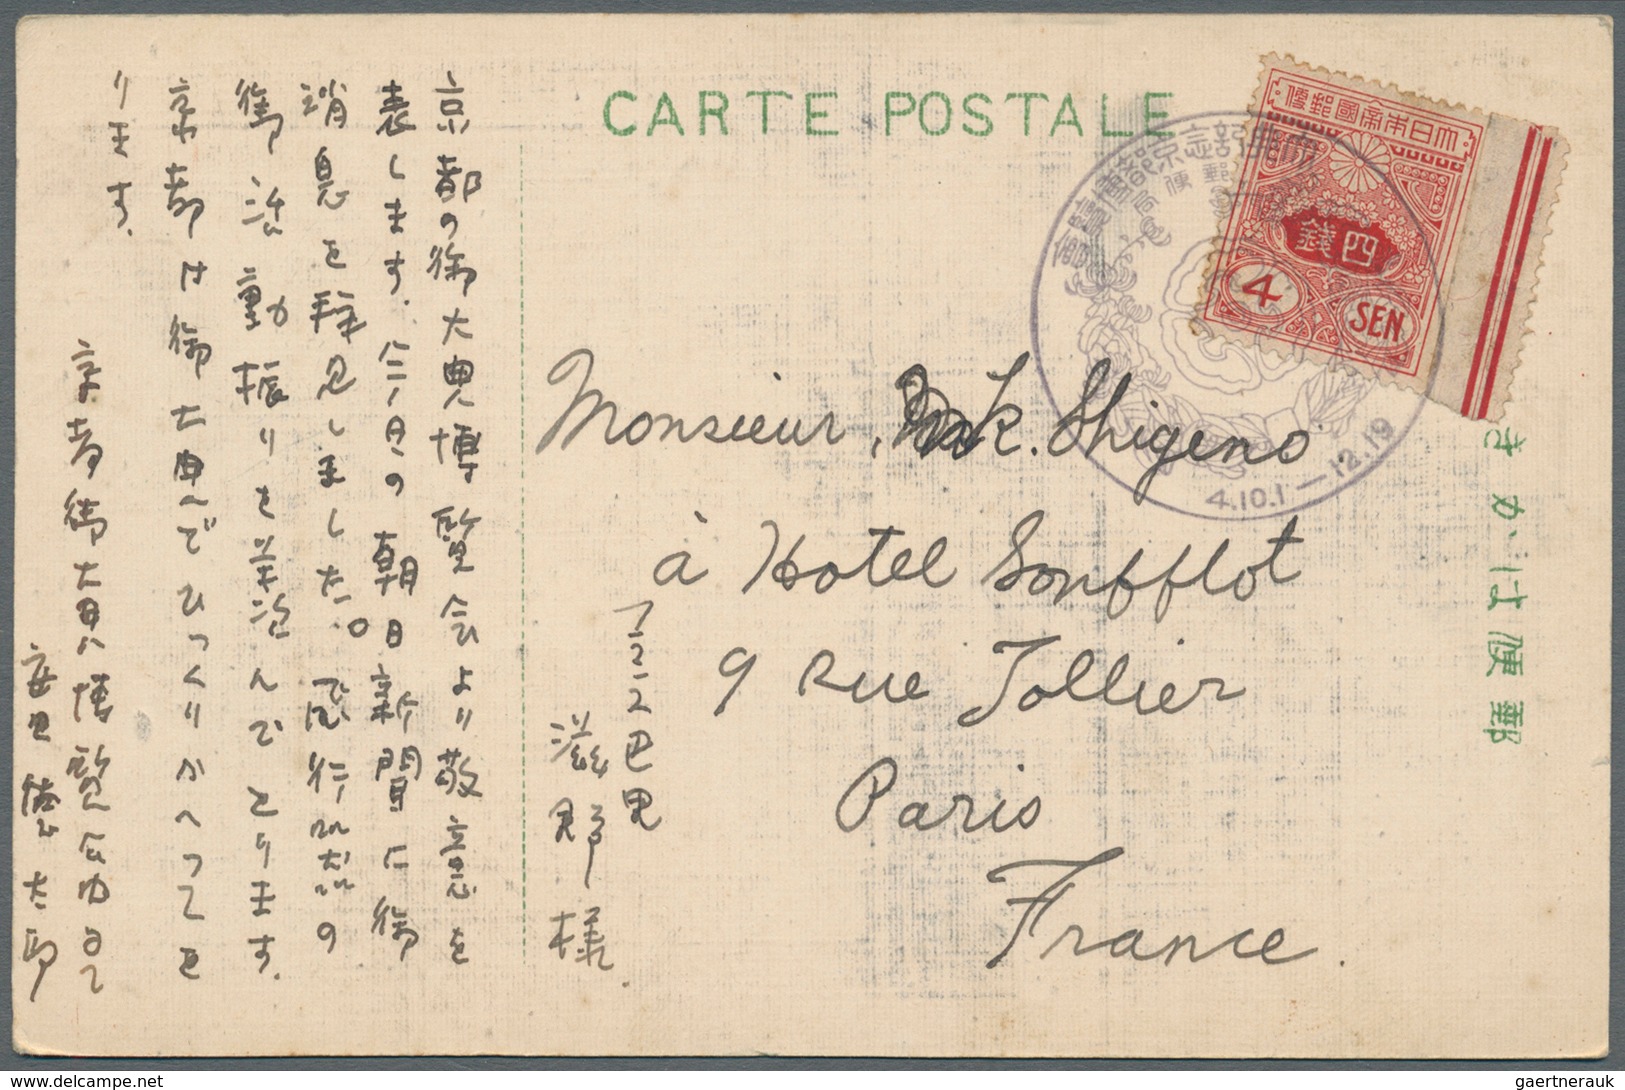 CARTE POSTALE
大日本帝國郵便
四錢
4 SEN
4.10.1—12.19
きかは便郵
Monsieur, K. Shigeno
à Hotel Soufflot
9 Rue Tollier
Paris
France.
フランス巴里
滋野様
京都の御大典博覧会より敬意を
表します.今日の朝日新聞に御
消息を拝見しました。飛行器の
御活動振りを
京都は御大典でひっくりかへつてを
ります.
京都御大典博覧会内にて
太郎
gaertnerauk